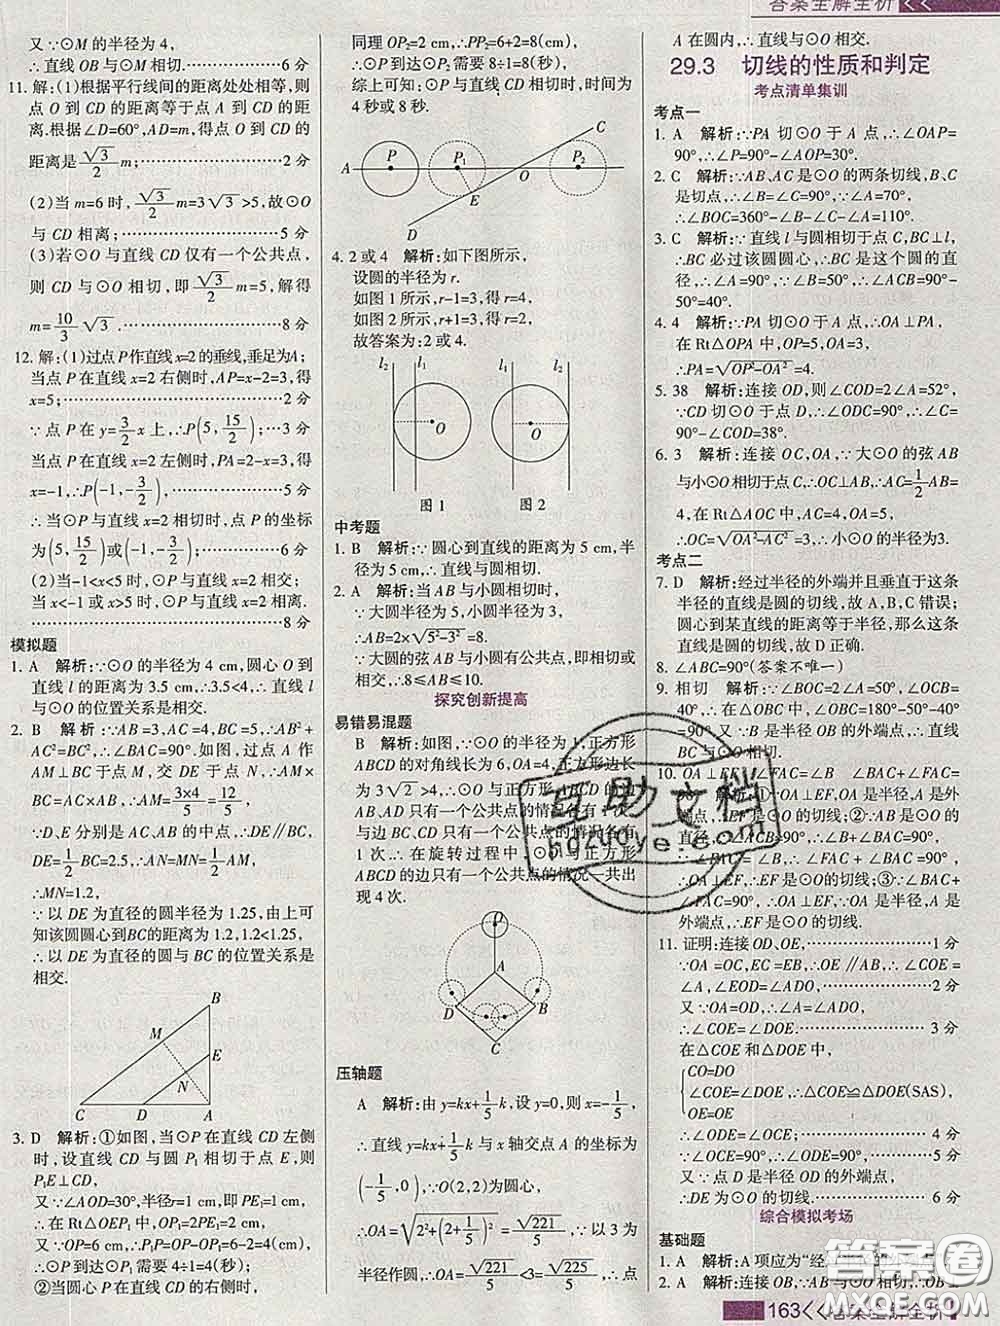 答案全解全析
又∵⊙M的半径为4,
∴直线OB与⊙M相切.……6分
11.解:(1)根据平行线间的距离处处相等,则
点O到CD的距离等于点A到CD的距
离.根据∠D=60°,AD=m,得点O到CD的
距离是√3/2 m;……2分
(2)当m=6时,√3/2 m=3√3>5,故⊙O
与CD相离;……5分
(3)若⊙O与直线CD仅有一个公共点,
则CD与⊙O相切,即√3/2 m=5,解得
m=10/3 √3.……8分
12.解:(1)过点P作直线x=2的垂线,垂足为A;
当点P在直线x=2右侧时,AP=x-2=3,得
x=5;……2分
∵点P在y=3/2 x上,∴P(5,15/2);…3分
当点P在直线x=2左侧时,PA=2-x=3,得
x=-1,∴P(-1,-3/2),……5分
∴当⊙P与直线x=2相切时,点P的坐标
为(5,15/2)或(-1,-3/2).……6分
(2)当-1<x<5时,⊙P与直线x=2相交;
当x<-1或x>5时,⊙P与直线x=2相离.
……8分
模拟题
1. A 解析:∵⊙O的半径为4 cm,圆心O到
直线l的距离为3.5 cm,∴3.5<4,∴直线l
与⊙O的位置关系是相交.
2. B 解析:∵AB=3,AC=4,BC=5,∴AB²+
AC²=BC²,∴∠BAC=90°.如图,过点A作
AM⊥BC于点M,交DE于点N,∴AM×
BC=AC×AB,∴AM=3×4/5=12/5,
∵D、E分别是AC、AB的中点,∴DE∥BC,
DE=1/2 BC=2.5,∴AN=MN=1/2 AM,
∴MN=1.2,
∵以DE为直径的圆半径为1.25,由上可
知该圆圆心到BC的距离为1.2,1.2<1.25,
∴以DE为直径的圆与BC的位置关系是
相交.
B
M
E
N
C D A
3. D 解析:①如图,当⊙P在直线CD左侧
时,设直线CD与圆P₁相切于点E,则
P₁E⊥CD,
又∵∠AOD=30°,半径r=1 cm,即P₁E=1 cm,
∴在Rt△OEP₁中,OP₁=2P₁E=2 cm,
又∵OP=6 cm,∴P₁P=OP-OP₁=6-2=4(cm),
∴⊙P到达⊙P₁需要4÷1=4(秒);
②当圆心P在直线CD的右侧时,
同理OP₂=2 cm,∴PP₂=6+2=8(cm),
∴⊙P到达⊙P₂需要8÷1=8(秒),
综上可知:⊙P与直线CD相切时,时间为
4秒或8秒.
C
A P P₁ O P₂
E
D
4. 2或4 解析:如下图所示,
设圆的半径为r.
如图1所示,r-1=3,得r=4,
如图2所示,r+1=3,得r=2,
故答案为:2或4.
l₂ l₁ l₂ l₁
O O
图1 图2
中考题
1. B 解析:∵圆心到直线的距离为5 cm,半
径为5 cm,∴直线与圆相切.
2. A 解析:当AB与小圆相切时,
∵大圆半径为5,小圆半径为3,
∴AB=2×√5²-3²=8.
∵大圆的弦AB与小圆有公共点,即相切或
相交,∴8≤AB≤10.
探究创新提高
易错易混题
B 解析:如图,∵⊙O的半径=1,正方形
ABCD的对角线长为6,正方形边长
为3√2>4,∴⊙O与正方形ABCD
AB、AD只有一个公共点的情况各有1次,
与边BC、CD只有一个公共点的情况各有
1次.∴在旋转过程中,⊙O与正方形
ABCD的边只有一个公共点的情况一共出
现4次.
O
A
D B
C
压轴题
A 解析:由y=kx+1/5 k,设y=0,则x=-1/5,
∴直线y=kx+1/5 k与x轴交点A的坐标为
(-1/5,0),∵O(2,2)为圆心,
∴OA=√2²+(2+1/5)²=√221/5,∵以3为
半径作圆,∴OA=√221/5<3=√225/5,∴点
A在圆内,∴直线与⊙O相交.
29.3 切线的性质和判定
考点清单集训
考点一
1. A 解析:∵PA切⊙O于A点,∴∠OAP=
90°,∴∠P=90°-∠AOP=30°.
2. C 解析:∵AB、AC是⊙O的两条切线,B、C
是切点,∴∠B=∠C=90°,∵∠A=70°,
∴∠BOC=360°-∠B-∠C-∠A=110°.
3. C 解析:∵直线l与圆相切于点C,BC⊥l,
∴BC必过该圆圆心,∴BC是这个圆的直
径,∴∠A=90°,∴∠ABC=90°-∠ACB=90°-
50°=40°.
4. 4 解析:∵PA切⊙O于A点,∴OA⊥PA,
在Rt△OPA中,OP=5,OA=3,
∴PA=√OP²-OA²=4.
5. 38 解析:连接OD,则∠COD=2∠A=52°,
∵CD切⊙O于点D,∴∠ODC=90°,∴∠C=
90°-∠COD=38°.
6. 3 解析:连接OC,OA,∵大⊙O的弦AB
与小⊙O相切于点C,∴∠ACO=90°,AC=1/2 AB=
4,在Rt△AOC中,AC=4,OA=5,
∴OC=√OA²-AC²=3,∴小⊙O的半径为3.
考点二
7. D 解析:经过半径的外端并且垂直于这条
半径的直线是圆的切线,故A、B、C错误;
圆心到某直线的距离等于半径,那么这条
直线是圆的切线,故D正确.
8. ∠ABC=90°(答案不唯一)
9. 相切 解析:∵∠BOC=2∠A=50°,∠OCB=
40°,∴在△OBC中,∠OBC=180°-50°-40°
=90°.又∵OB是⊙O的半径的外端点,∴直线
BC与⊙O相切.
10. OA⊥EF ∠FAC=∠B ∠BAC+∠FAC=
90° 解析:①∵OA⊥EF,OA是半径,A是外
端点,∴EF是⊙O的切线;②∵AB是⊙O
的直径,∴∠C=90°,∴∠B+∠BAC=90°,
∴∠BAC+∠FAC=90°,
∴OA⊥EF,∴EF是⊙O的切线;③∵∠BAC
+∠FAC=90°,∴OA⊥EF,∵OA是半径,A是
外端点,∴EF是⊙O的切线.
11. 证明:连接OD、OE,……1分
∵OA=OC,EC=EB,∴OE∥AB,∴∠COE=
∠A,∠EOD=∠ADO,……2分
又∵OA=OD,∴∠A=∠ADO,
∴∠COE=∠DOE.……3分
在△COE和△DOE中,
CO=DO
∠COE=∠DOE,∴△COE≌△DOE(SAS),
OE=OE
∴∠ODE=∠OCE;……4分
又∵∠OCE=90°,∴∠ODE=90°.……5分
又∵点D是半径OD的外端点,
∴DE为⊙O的切线.……6分
综合模拟考场
基础题
1. A 解析:A项应为“经
2. A 解析:连接OB,∵AB与⊙O相切,∴OB⊥
163<<答案全解全析
互助文档
hdzuoye.com
答案圈